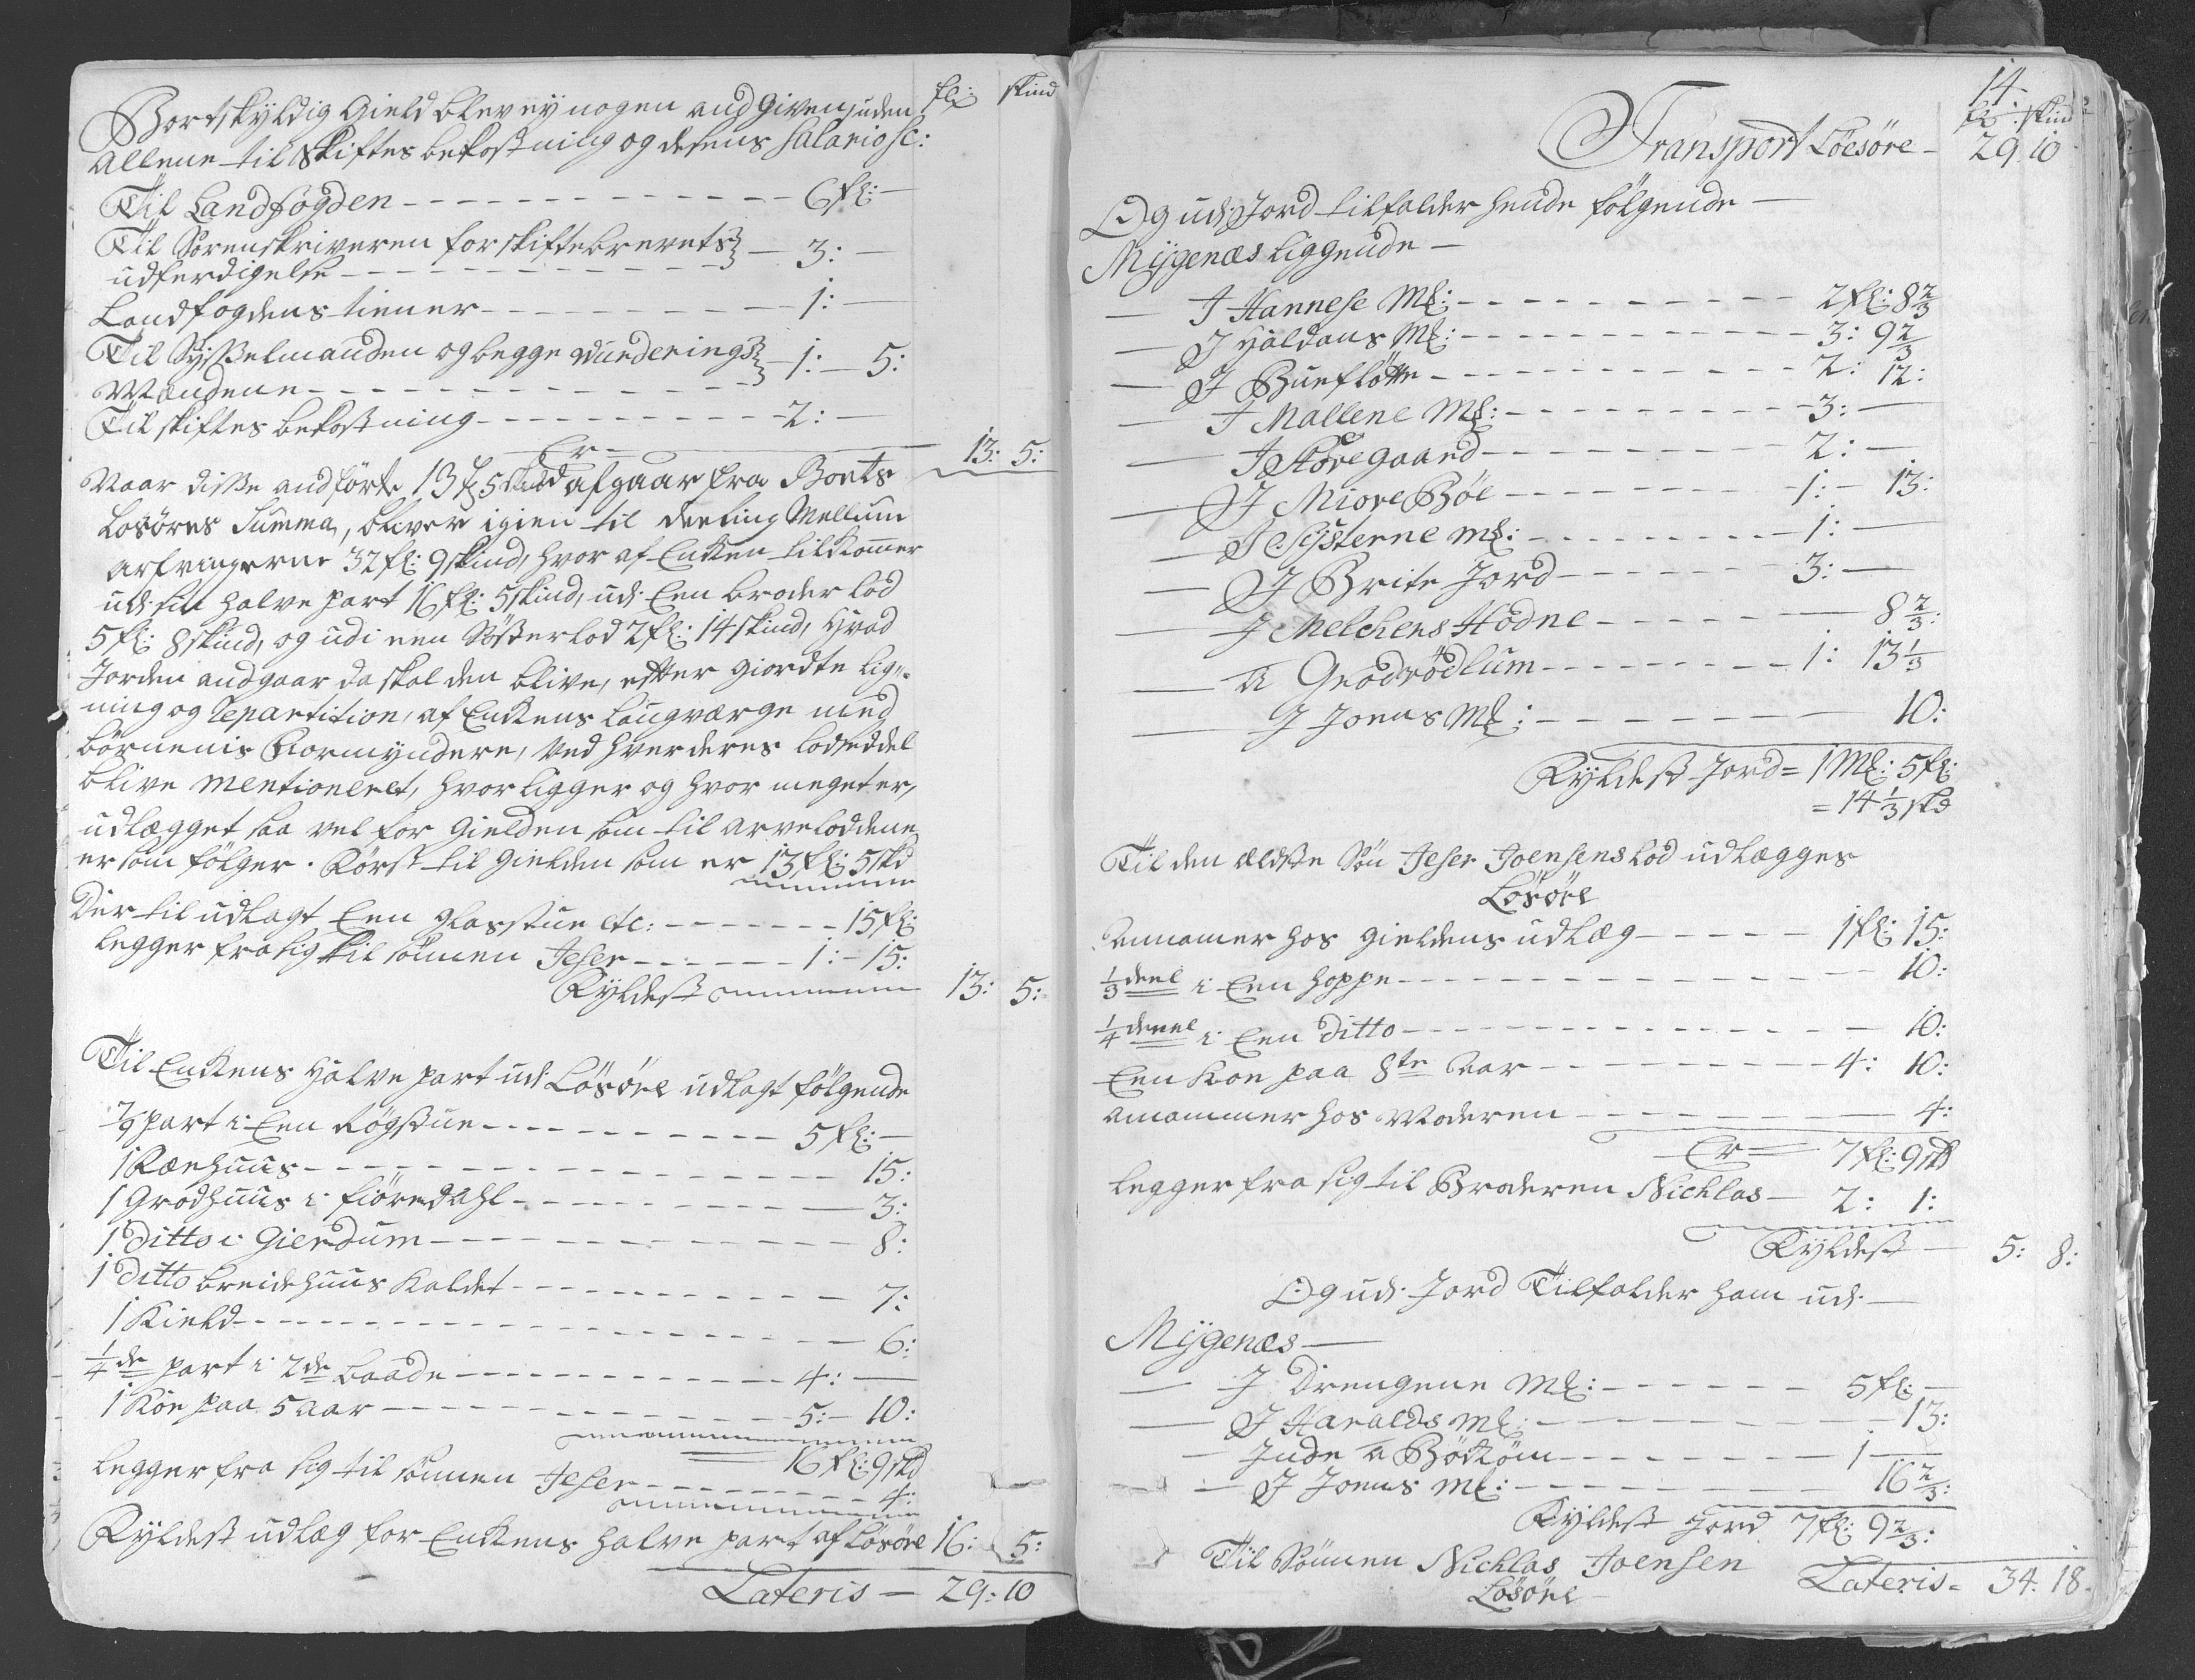 fl: skind
Bortskyldig Gield blev ey nogen andgiven, uden
allene til Skiftes bekostning og desens Salario sc:
Til Landfogden - 6 fl: -
Til Sorenskriveren for skiftebrevets
udferdigelse - 3: -
Landfogdens tiener - 1: -
Til Sysselmanden og begge Vurderings
Mændene - 1: - 5:
Til skiftes bekostning - 2: -
Er - 13: 5:
Naar disse andförte 13 fl 5 skind afgaar fra Boets
Losöres Summa, bliver igien til deeling Mellum
arfvingerne 32 fl: 9 skind, hvor af Encken tilkommer
udi sin halve part 16 fl: 5 skind, udi Een broder lod
5 fl: 8 skind, og udi een Sösterlod 2 fl: 14 skind, hvad
Jorden andgaar da skal den blive, efter giordte lig-
ning og Repartition, af Enckens laugværge med
börnenis Formyndere, ved hver deres lodseddel
blive Mentioneret, hvor ligger og hvor meget er,
udlægget saa vel for Gielden som til arveloddene
er som fölger. Först til Gielden som er 13 fl: 5 skd
Der til udlagt Een glasstue etc: - 15 fl:
legger fra sig til sönnen Jeser - 1: - 15:
Fyldest 13: 5:
Til Enckens halve part udi Lösöre udlagt fölgende
part i Een Rögstue - 5 fl: -
1 - 15:
1 Grodhuus i fiöredahl - 3:
1 Ditto i Gierdum - 8:
1 Ditto breidehuus kaldet - 7:
1 Kield - 6:
1/4 de part i 2de baade - 4: -
1 Koe paa 5 aar - 5: - 10:
16 fl: 9 skd
legger fra sig til sönnen Jeser - 4:
Fyldest udlæg for Enckens halve part af lösöre 16: 5:
Lateris - 29: 10
14.
fl: skind
Transport Löesöre - 29. 10
Og udi Jord tilfalder hende fölgende -
Mygenæs liggende -
- J Hannese Mk: - 2 fl: 8 2/3
- J Haldans Mk: - 3: 9 2/3
- J Bueflötte - 2: 12:
- J Mallene Mk: - 3: -
- J Storegaard - 2: -
- J Miove Böe - 1: - 13:
- J Systerne Mk: - 1: -
- J Brite Jord - 3: -
- J Melchens Hodne - 8 2/3:
- A Grodrödlum - 1: 13 1/3
- J Joens Mk: - 10:
Fyldest Jord = 1 Mk: 5 fl:
= 14 1/3 skd
Til den ældste Sön Jeser Joensens lod udlægges
Lösöre
annamer hos gieldens udlæg - 1 fl: 15:
1/3 deel i Een hoppe - 10:
1/4 deel i Een Ditto - 10:
Een Koe paa 8te aar - 4: 10:
annammer hos Moderen - 4:
Er = 7 fl: 9 skd
legger fra sig til Broderen Nichlas - 2: 1:
Fyldest - 5: 8:
Og udi Jord Tilfalder ham udi -
Mygenæs -
- J Drengene Mk: - 5 fl: -
- J Haralds Mk: - 13:
- Inde a Böckom - 1 -
- J Joens Mk: - 16 2/3:
Fyldest Jord 7 fl: 9 2/3:
Til Sönnen Nichlas Joensen
Lösöre
Lateris = 34. 18.